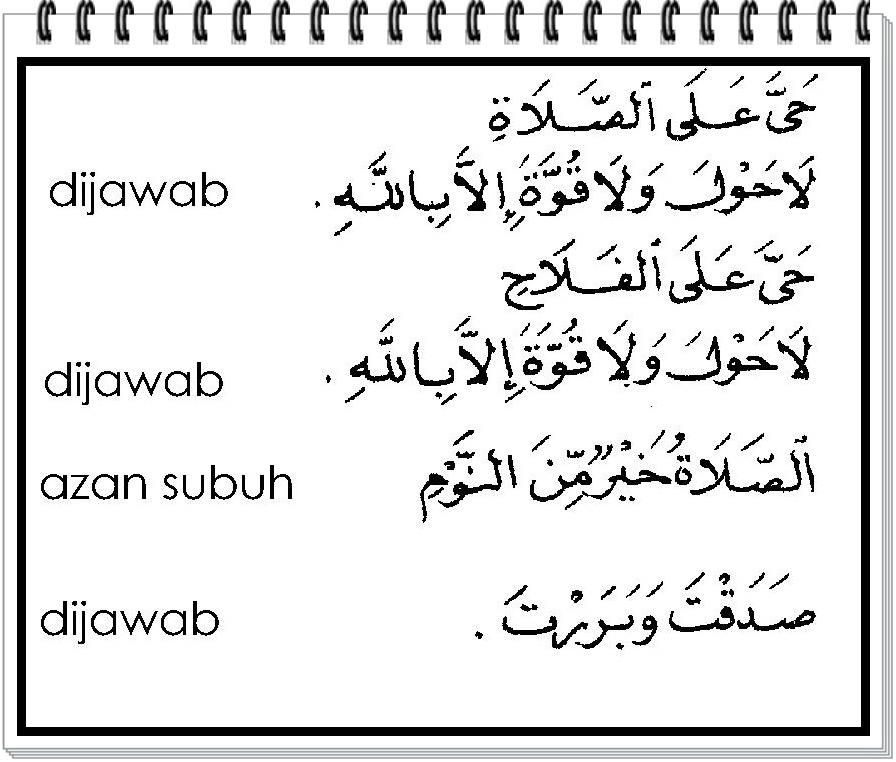 حَيَّ عَلَى ٱلصَّلَاةِ
dijawab لَاحَوْلَ وَلَا قُوَّةَ إِلاَّ بِاللَّهِ .
حَيَّ عَلَى ٱلفَلَاحِ
dijawab لَاحَوْلَ وَلَا قُوَّةَ إِلاَّ بِاللَّهِ .
azan subuh ٱلصَّلَاةُ خَيْرٌ مِّنَ النَّوْمِ
dijawab صَدَقْتَ وَبَرَرْتَ .